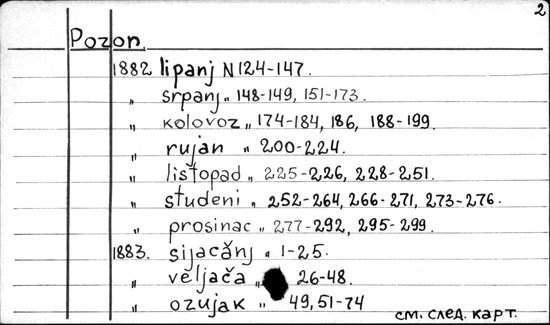 2
Pozor.
1882 lipanj N 124-147.
„ srpanj „ 148-149, 151-173.
„ kolovoz „ 174-184, 186, 188-199.
„ rujan „ 200-224.
„ listopad „ 225-226, 228-251.
„ studeni „ 252-264, 266-271, 273-276.
„ prosinac „ 277-292, 295-299.
1883. sijačănj „ 1-25.
„ veljača „ 26-48.
„ ozujak „ 49, 51-74
см. след. карт.